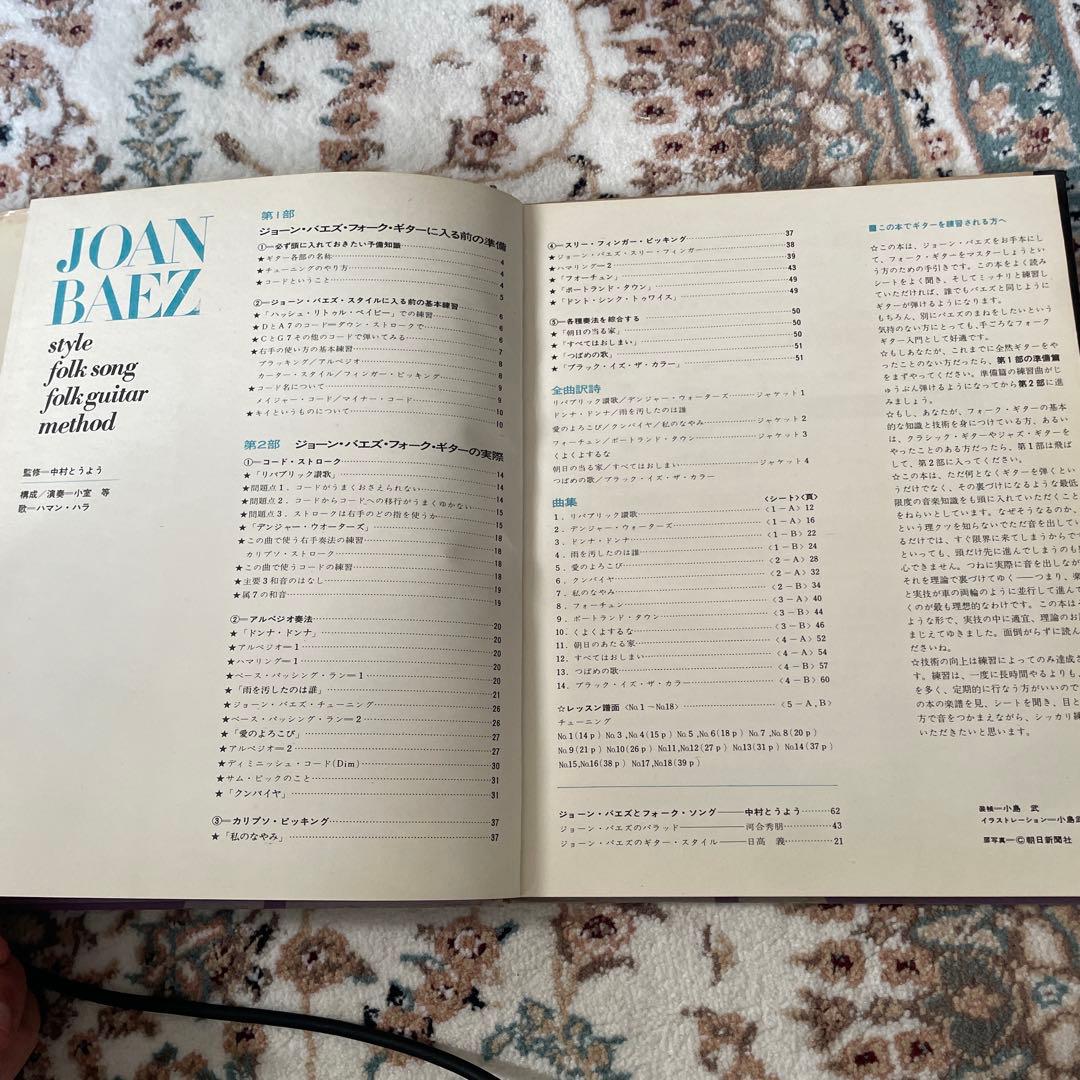 JOAN
BAEZ
style
folk song
folk guitar
method
監修━中村とうよう
構成／演奏━小室 等
歌━ハマン・ハラ
第1部
ジョーン・バエズ・フォーク・ギターに入る前の準備
①━必ず頭に入れておきたい予備知識
★ギター各部の名称 4
★チューニングのやり方 4
★コードということ 5
②━ジョーン・バエズ・スタイルに入る前の基本練習
★「ハッシュ・リトゥル・ベイビー」での練習 6
★DとA7のコード━ダウン・ストロークで 6
★CとG7その他のコードで弾いてみる 6
★右手の使い方の基本練習 7
ブラッキング／アルペジオ 8
カーター・スタイル／フィンガー・ピッキング 8
★コード名について 9
メイジャー・コード／マイナー・コード 9
★キイというものについて 10
10
第2部 ジョーン・バエズ・フォーク・ギターの実際
①━コード・ストローク
★「リパブリック讃歌」 14
★問題点1．コードがうまくおさえられない 14
★問題点2．コードからコードへの移行がうまくゆかない 15
★問題点3．ストロークは右手のどの指を使うか 15
★「デンジャー・ウオーターズ」 15
★この曲で使う右手奏法の練習 18
カリプソ・ストローク 18
★この曲で使うコードの練習 18
★主要3和音のはなし 19
★属7の和音 19
②━アルペジオ奏法 20
★「ドンナ・ドンナ」 20
★アルペジオ━1 20
★ハマリング━1 20
★ベース・パッシング・ラン━1 20
★「雨を汚したのは誰」 21
★ジョーン・バエズ・チューニング 26
★ベース・パッシング・ラン━2 26
★「愛のよろこび」 27
★アルペジオ━2 27
★ディミニッシュ・コード(Dim) 30
★サム・ピックのこと 31
★「クンバイヤ」 31
③━カリプソ・ピッキング 37
★「私のなやみ」 37
④━スリー・フィンガー・ピッキング 37
★ジョーン・バエズ・スリー・フィンガー 38
★ハマリング━2 39
★「フォーチュン」 43
★「ポートランド・タウン」 49
★「ドント・シンク・トゥワイス」 49
⑤━各種奏法を綜合する 50
★「朝日の当る家」 50
★「すべてはおしまい」 51
★「つばめの歌」 51
★「ブラック・イズ・ザ・カラー」 51
全曲訳詩
リパブリック讃歌／デンジャー・ウォーターズ ジャケット1
ドンナ・ドンナ／雨を汚したのは誰
愛のよろこび／クンバイヤ／私のなやみ ジャケット2
フォーチュン／ポートランド・タウン ジャケット3
くよくよするな
朝日の当る家／すべてはおしまい ジャケット4
つばめの歌／ブラック・イズ・ザ・カラー
曲集 〈シート〉〈頁〉
1．リパブリック讃歌 〈1－A〉12
2．デンジャー・ウォーターズ 〈1－A〉16
3．ドンナ・ドンナ 〈1－B〉22
4．雨を汚したのは誰 〈1－B〉24
5．愛のよろこび 〈2－A〉28
6．クンバイヤ 〈2－A〉32
7．私のなやみ 〈2－B〉34
8．フォーチュン 〈3－A〉40
9．ポートランド・タウン 〈3－B〉44
10．くよくよするな 〈3－B〉46
11．朝日のあたる家 〈4－A〉52
12．すべてはおしまい 〈4－A〉54
13．つばめの歌 〈4－B〉57
14．ブラック・イズ・ザ・カラー 〈4－B〉60
☆レッスン譜面〈No.1～No.18〉 〈5－A, B〉
チューニング
No.1(14p) No.3, No.4(15p) No.5, No.6(18p) No.7, No.8(20p)
No.9(21p) No.10(26p) No.11, No.12(27p) No.13(31p) No.14(37p)
No.15, No.16(38p) No.17, No.18(39p)
ジョーン・バエズとフォーク・ソング━中村とうよう 62
ジョーン・バエズのバラッド━河合秀朋 43
ジョーン・バエズのギター・スタイル━日高 義 21
■この本でギターを練習される方へ
☆この本は、ジョーン・バエズをお手本にし
て、フォーク・ギターをマスターしようとい
う方のための手引きです。この本をよく読み
シートをよく聞き、そしてミッチリと練習し
ていただければ、誰でもバエズと同じように
ギターが弾けるようになります。
もちろん、別にバエズのまねをしたいという
気持のない方にとっても、手ごろなフォーク
ギター入門として好適です。
☆もしあなたが、これまでに全然ギターをや
ったことのない方だったら、第1部の準備篇
をまずやってください。準備篇の練習曲がじ
ゅうぶん弾けるようになってから第2部に進
みましょう。
☆もし、あなたが、フォーク・ギターの基本
的な知識と技術を身につけている方、あるい
は、クラシック・ギターやジャズ・ギターを
やったことのある方だったら、第1部は飛ば
して、第2部に入ってください。
☆この本は、ただ何となくギターを弾くとい
うだけでなく、その裏づけになるような最低
限度の音楽知識をも頭に入れていただくこと
をねらいとしています。なぜそうなるのか、
という理クツを知らないでただ音を出してい
るだけでは、すぐ限界に来てしまうからです
といっても、頭だけ先に進んでしまうのも
心できません。つねに実際に音を出しなが
それを理論で裏づけてゆく━つまり、
と実技が車の両輪のように並行して進ん
くのが最も理想的なわけです。この本は
ような形で、実技の中に適宜、理論のお
まじえてゆきました。面倒がらずに読ん
ださいね。
☆技術の向上は練習によってのみ達成さ
す。練習は、一度に長時間やるよりも、
を多く、定期的に行なう方がいいので
の本の楽譜を見、シートを聞き、目と
方で音をつかまえながら、シッカリ練
いただきたいと思います。
装幀━小島 武
イラストレーション━小島武
扉写真━©朝日新聞社